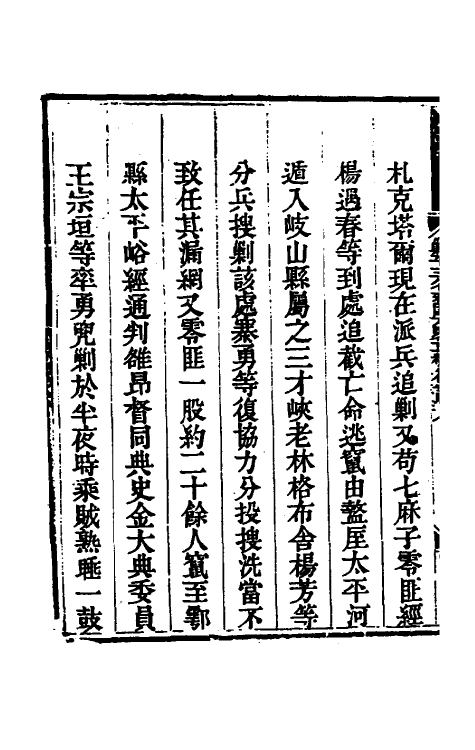 札克塔爾現在派兵追剿又苟七麻子零匪經
楊遇春等到處追截亡命逃竄由盩厔太平河
遁入岐山縣屬之三才峽老林格布舍楊芳等
分兵搜剿該處寨勇等復協力分投搜洗當不
致任其漏網又零匪一股約二十餘人竄至鄠
縣太平峪經通判雒昂督同典史金大典委員
王宗垣等率勇兜剿於半夜時乘賊熟睡一鼓